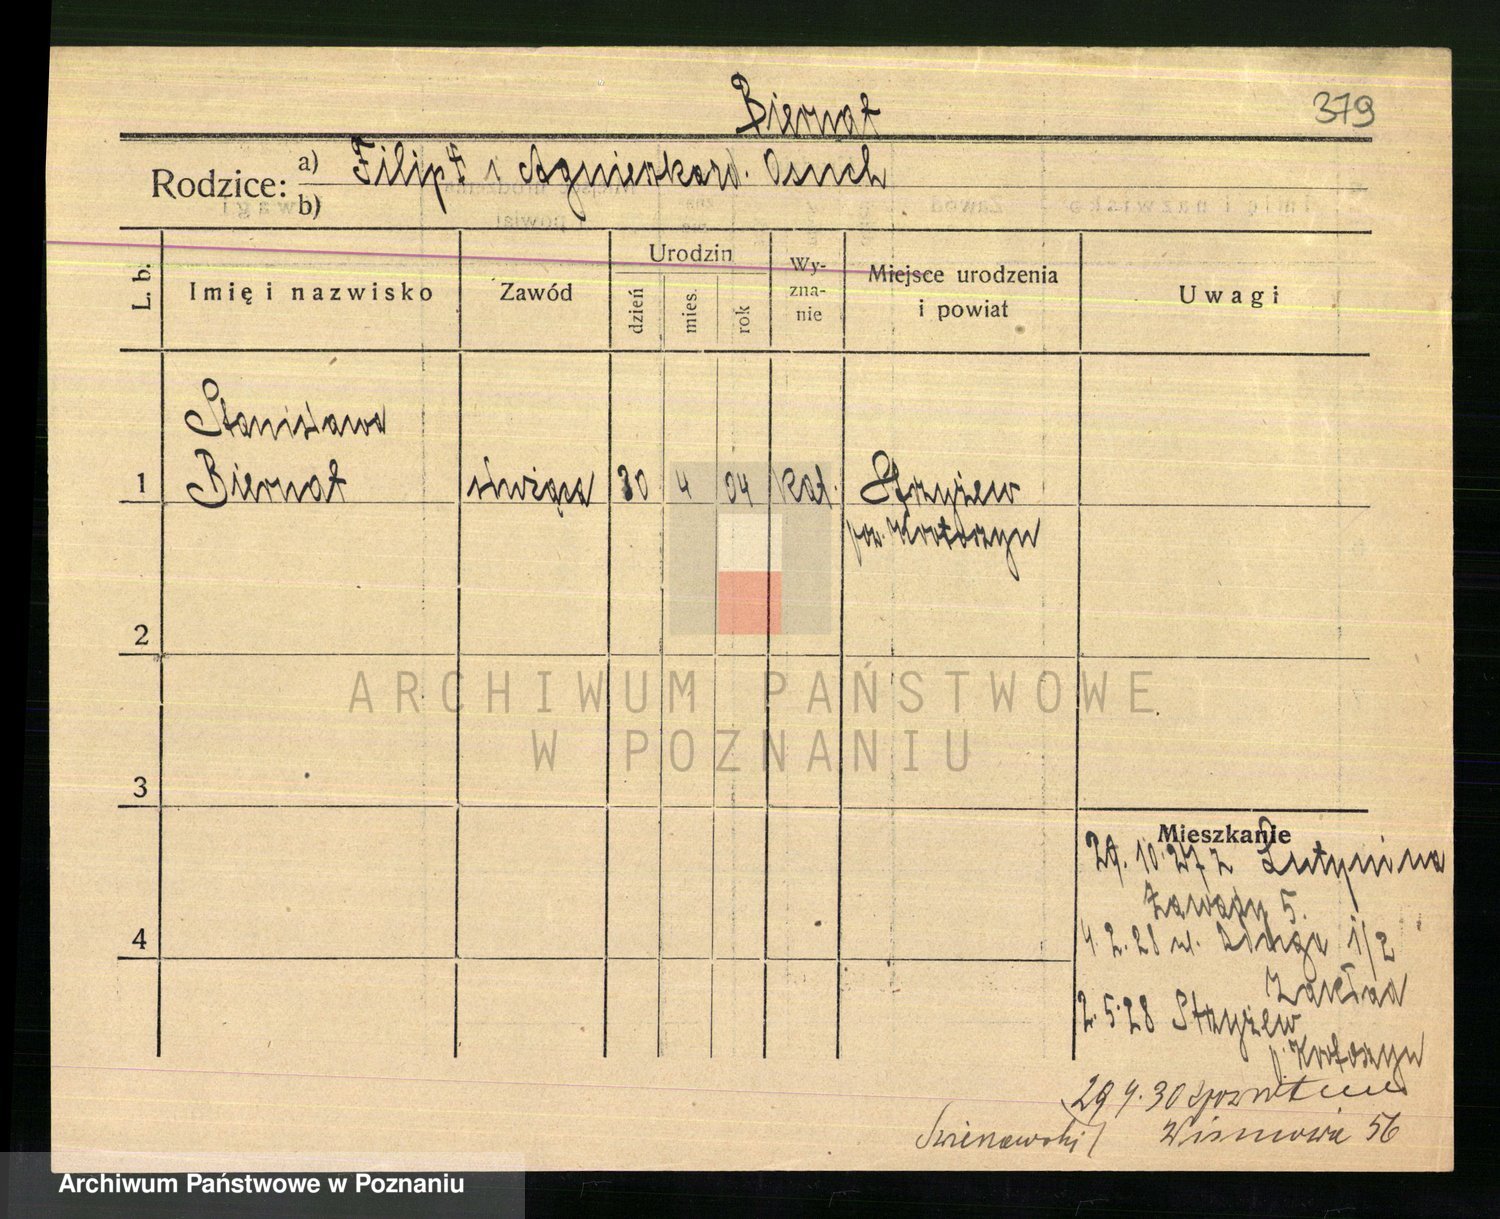 379
Biernat
Rodzice: a) Filip i Agnieszka ur. Osuch
b)
L. b.
Imię i nazwisko
Zawód
Urodzin
dzień
mies.
rok
Wy-
zna-
nie
Miejsce urodzenia
i powiat
Uwagi
Stanisława
1 Biernat służąca 30 4 04 kat. Strzyżew
pow. Krotoszyn
2
ARCHIWUM PAŃSTWOWE
W POZNANIU
3
Mieszkanie
29.10.27 z Lutynina
Zawady 5.
4
4.2.28 ul. Długa 1/2
Zakład
2.5.28 Strzyżew
p. Krotoszyn
29 4.30
56
Archiwum Państwowe w Poznaniu